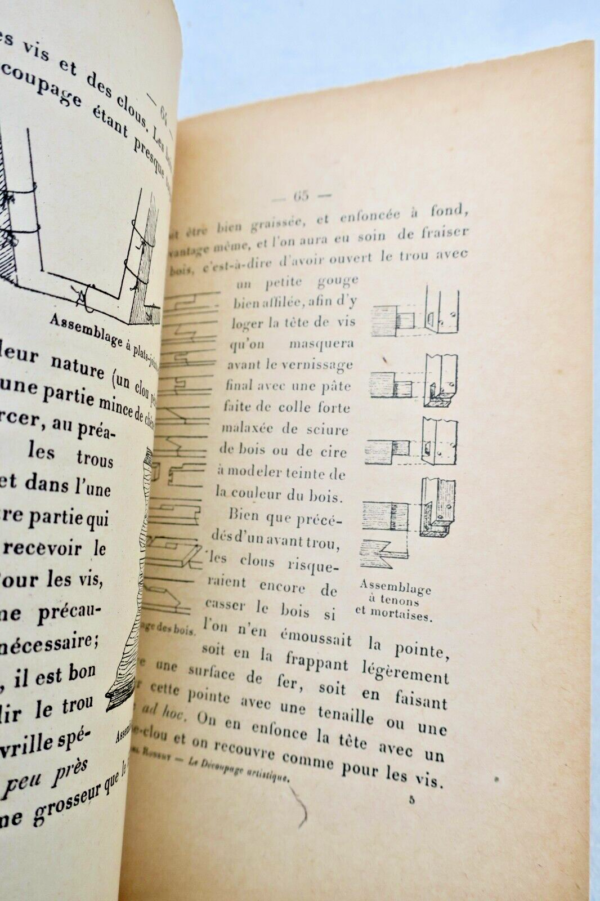 es vis et des clous. Les
coupage étant presque
— 64 —
Assemblage à plats-joints
leur nature (un clou
une partie mince de
rcer, au préa-
les trous
et dans l'une
re partie qui
recevoir le
Pour les vis,
me précau-
nécessaire;
, il est bon
lir le trou
vrille spé-
peu près
me grosseur que
— 65 —
être bien graissée, et enfoncée à fond,
vantage même, et l'on aura eu soin de fraiser
bois, c'est-à-dire d'avoir ouvert le trou avec
un petite gouge
bien affilée, afin d'y
loger la tête de vis
qu'on masquera
avant le vernissage
final avec une pâte
faite de colle forte
malaxée de sciure
de bois ou de cire
à modeler teinte de
la couleur du bois.
Bien que précé-
dés d'un avant trou,
les clous risque-
raient encore de
casser le bois si
l'on n'en émoussait la pointe,
soit en la frappant légèrement
une surface de fer, soit en faisant
cette pointe avec une tenaille ou une
ad hoc. On en enfonce la tête avec un
-clou et on recouvre comme pour les vis.
Assemblage
à tenons
et mortaises.
age des bois.
— Le Découpage artistique.
5